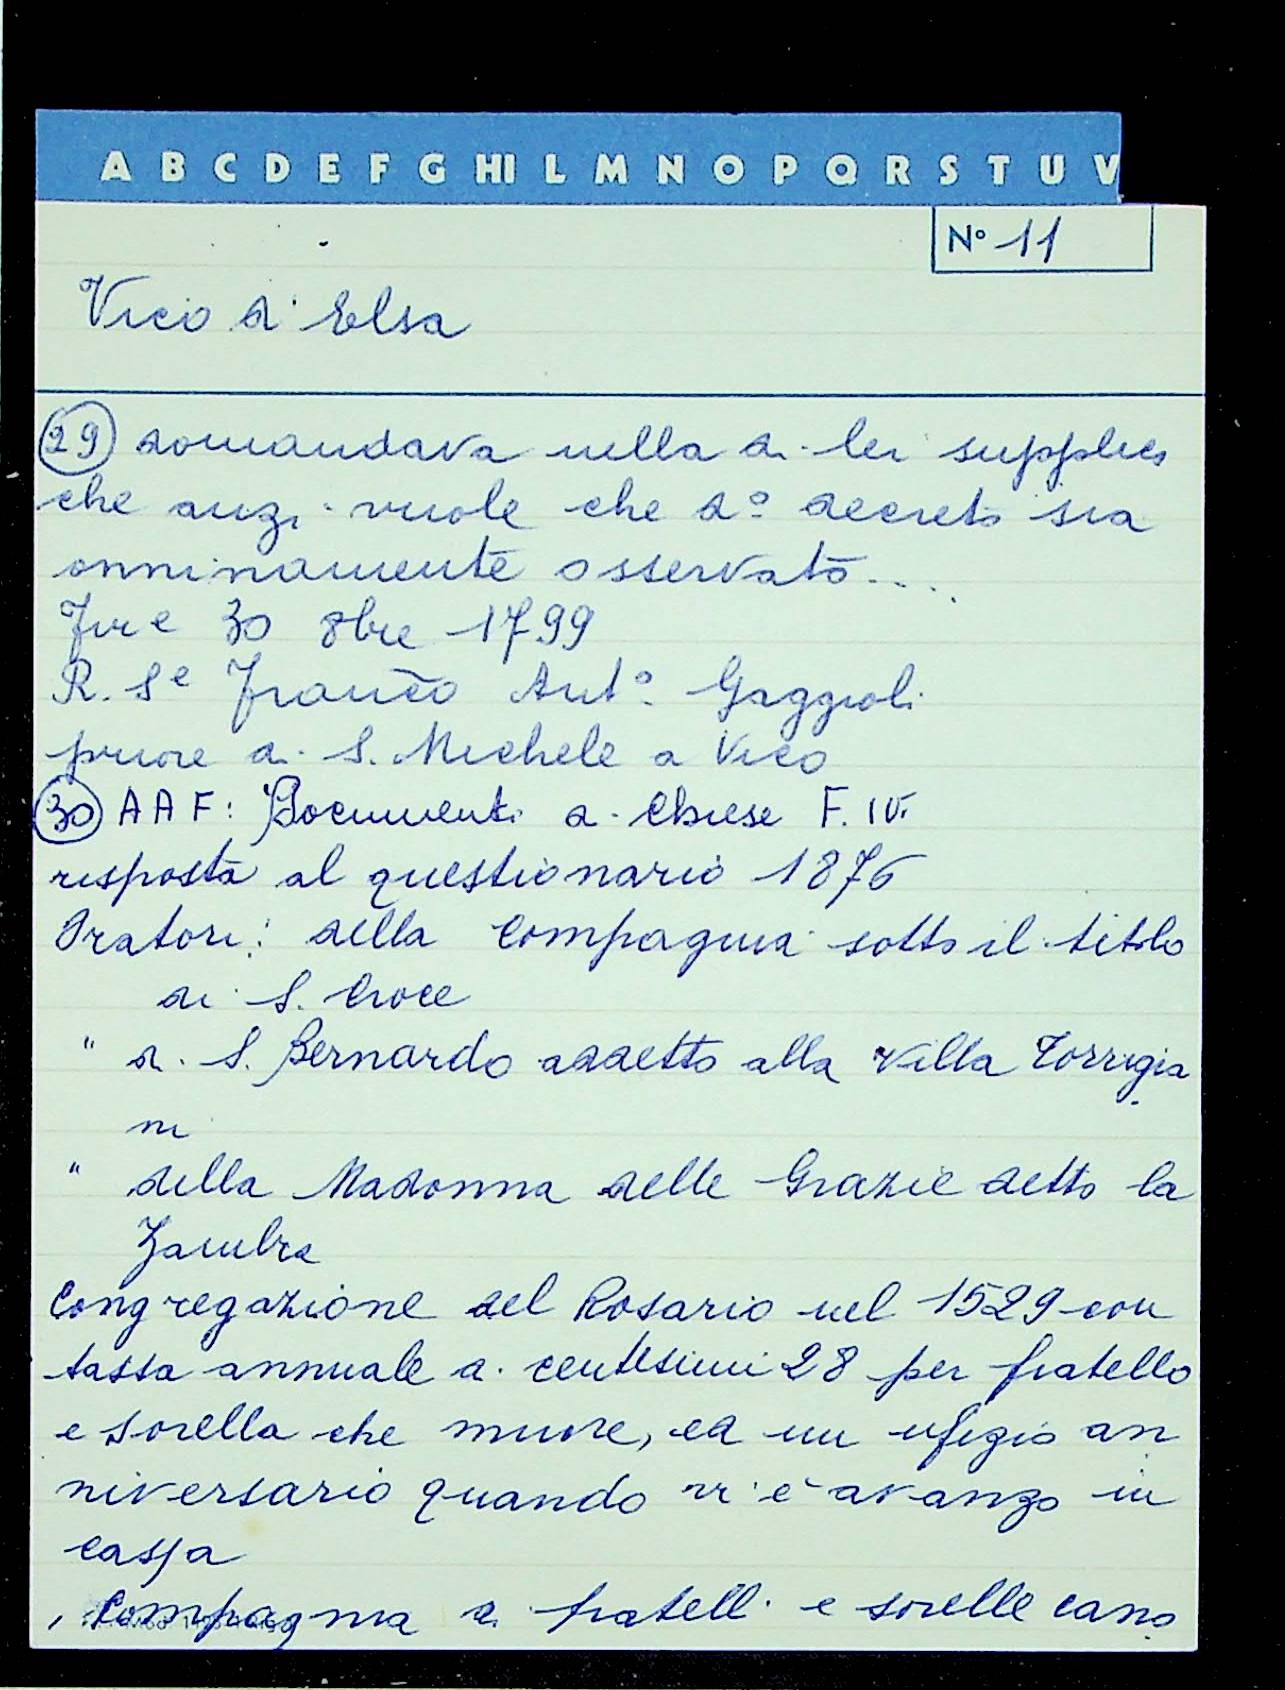 A B C D E F G HI L M N O P Q R S T U V
N° 11
Vico d'Elsa
29 domandava nella di lei supplica
che anzi vuole che d.° decreto sia
onninamente osservato....
Fire 30 8bre 1799
R. Se Franco Ant.° Gaggioli
priore di S. Michele a Vico
30 AAF: Documenti di Chiese F. IV.
risposta al questionario 1876
Oratori: della Compagnia sotto il titolo
di S. Croce
" di S. Bernardo addetto alla Villa Torrigia
ni
" della Madonna delle Grazie detto la
Zambra
Congregazione del Rosario nel 1529 con
tassa annuale di centesimi 28 per fratello
e sorella che muore, ed un ufizio an
niversario quando vi è avanzo in
cassa
, Compagnia di fratelli e sorelle cano